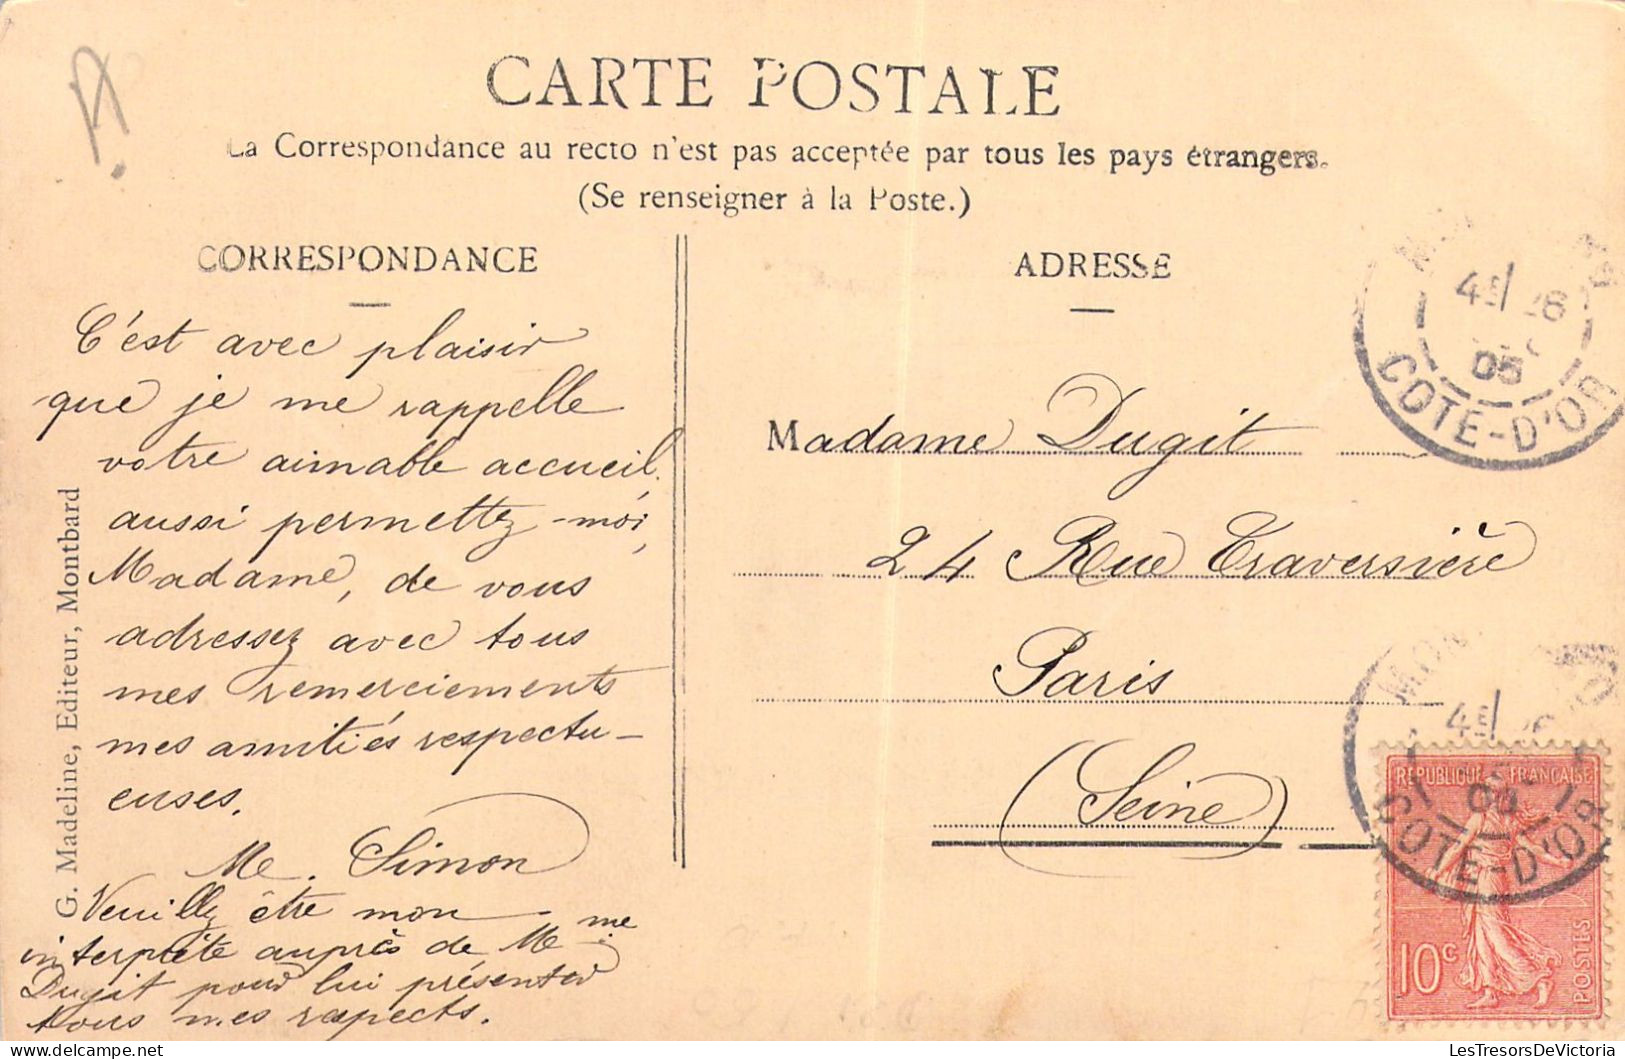 CARTE POSTALE
La Correspondance au recto n'est pas acceptée par tous les pays étrangers.
(Se renseigner à la Poste.)
CORRESPONDANCE
C'est avec plaisir
que je me rappelle
votre aimable accueil,
aussi permettez-moi,
Madame, de vous
adressez avec tous
mes remerciements
mes amitiés respectu-
euses.
Me. Simon
Veuillez être mon
interprète auprès de Mme
Dugit pour lui présenter
tous mes respects.
G. Madeline, Editeur, Montbard
ADRESSE
Madame Dugit
24 Rue Traversière
Paris
(Seine)
05
COTE-D'OR
COTE-D'OR
REPUBLIQUE FRANÇAISE
10c
POSTES
LesTresorsDeVictoria
delcampe.net